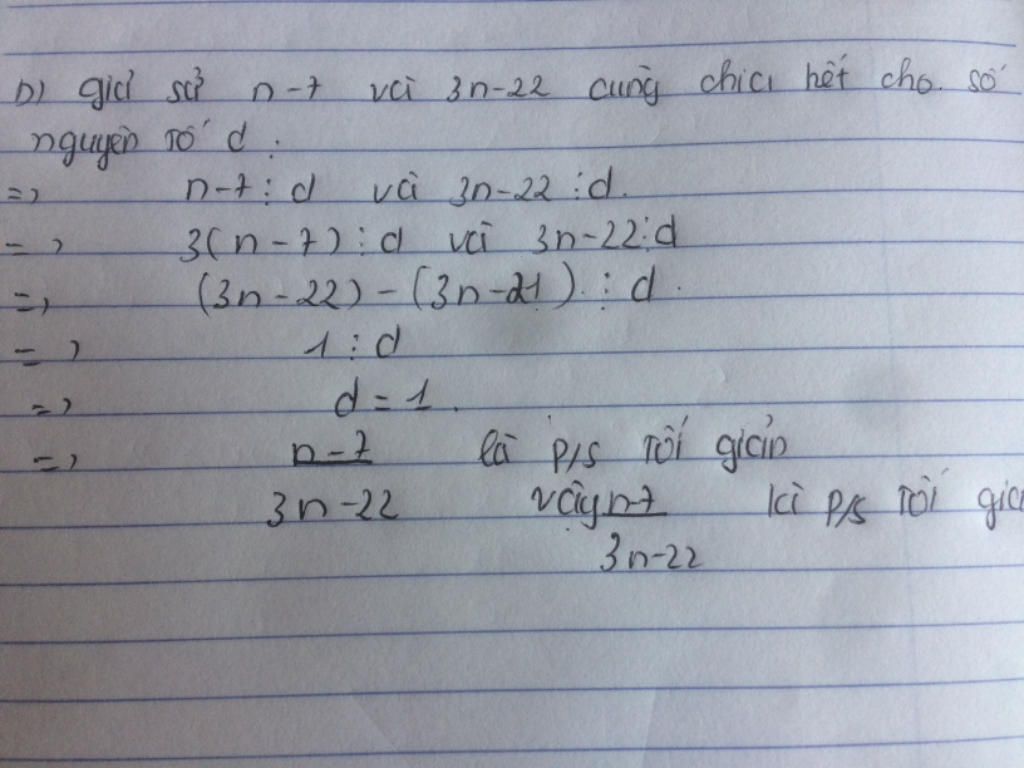 b) giả sử n-7 và 3n-22 cùng chia hết cho số
nguyên tố d:
=> n-7 ⋮ d và 3n-22 ⋮ d.
=> 3(n-7) ⋮ d và 3n-22 ⋮ d
=> (3n-22) - (3n-21) ⋮ d.
=> 1 ⋮ d
=> d = 1.
=> n-7 là p/s tối giản
3n-22 vậy n-7 là p/s tối giả
3n-22